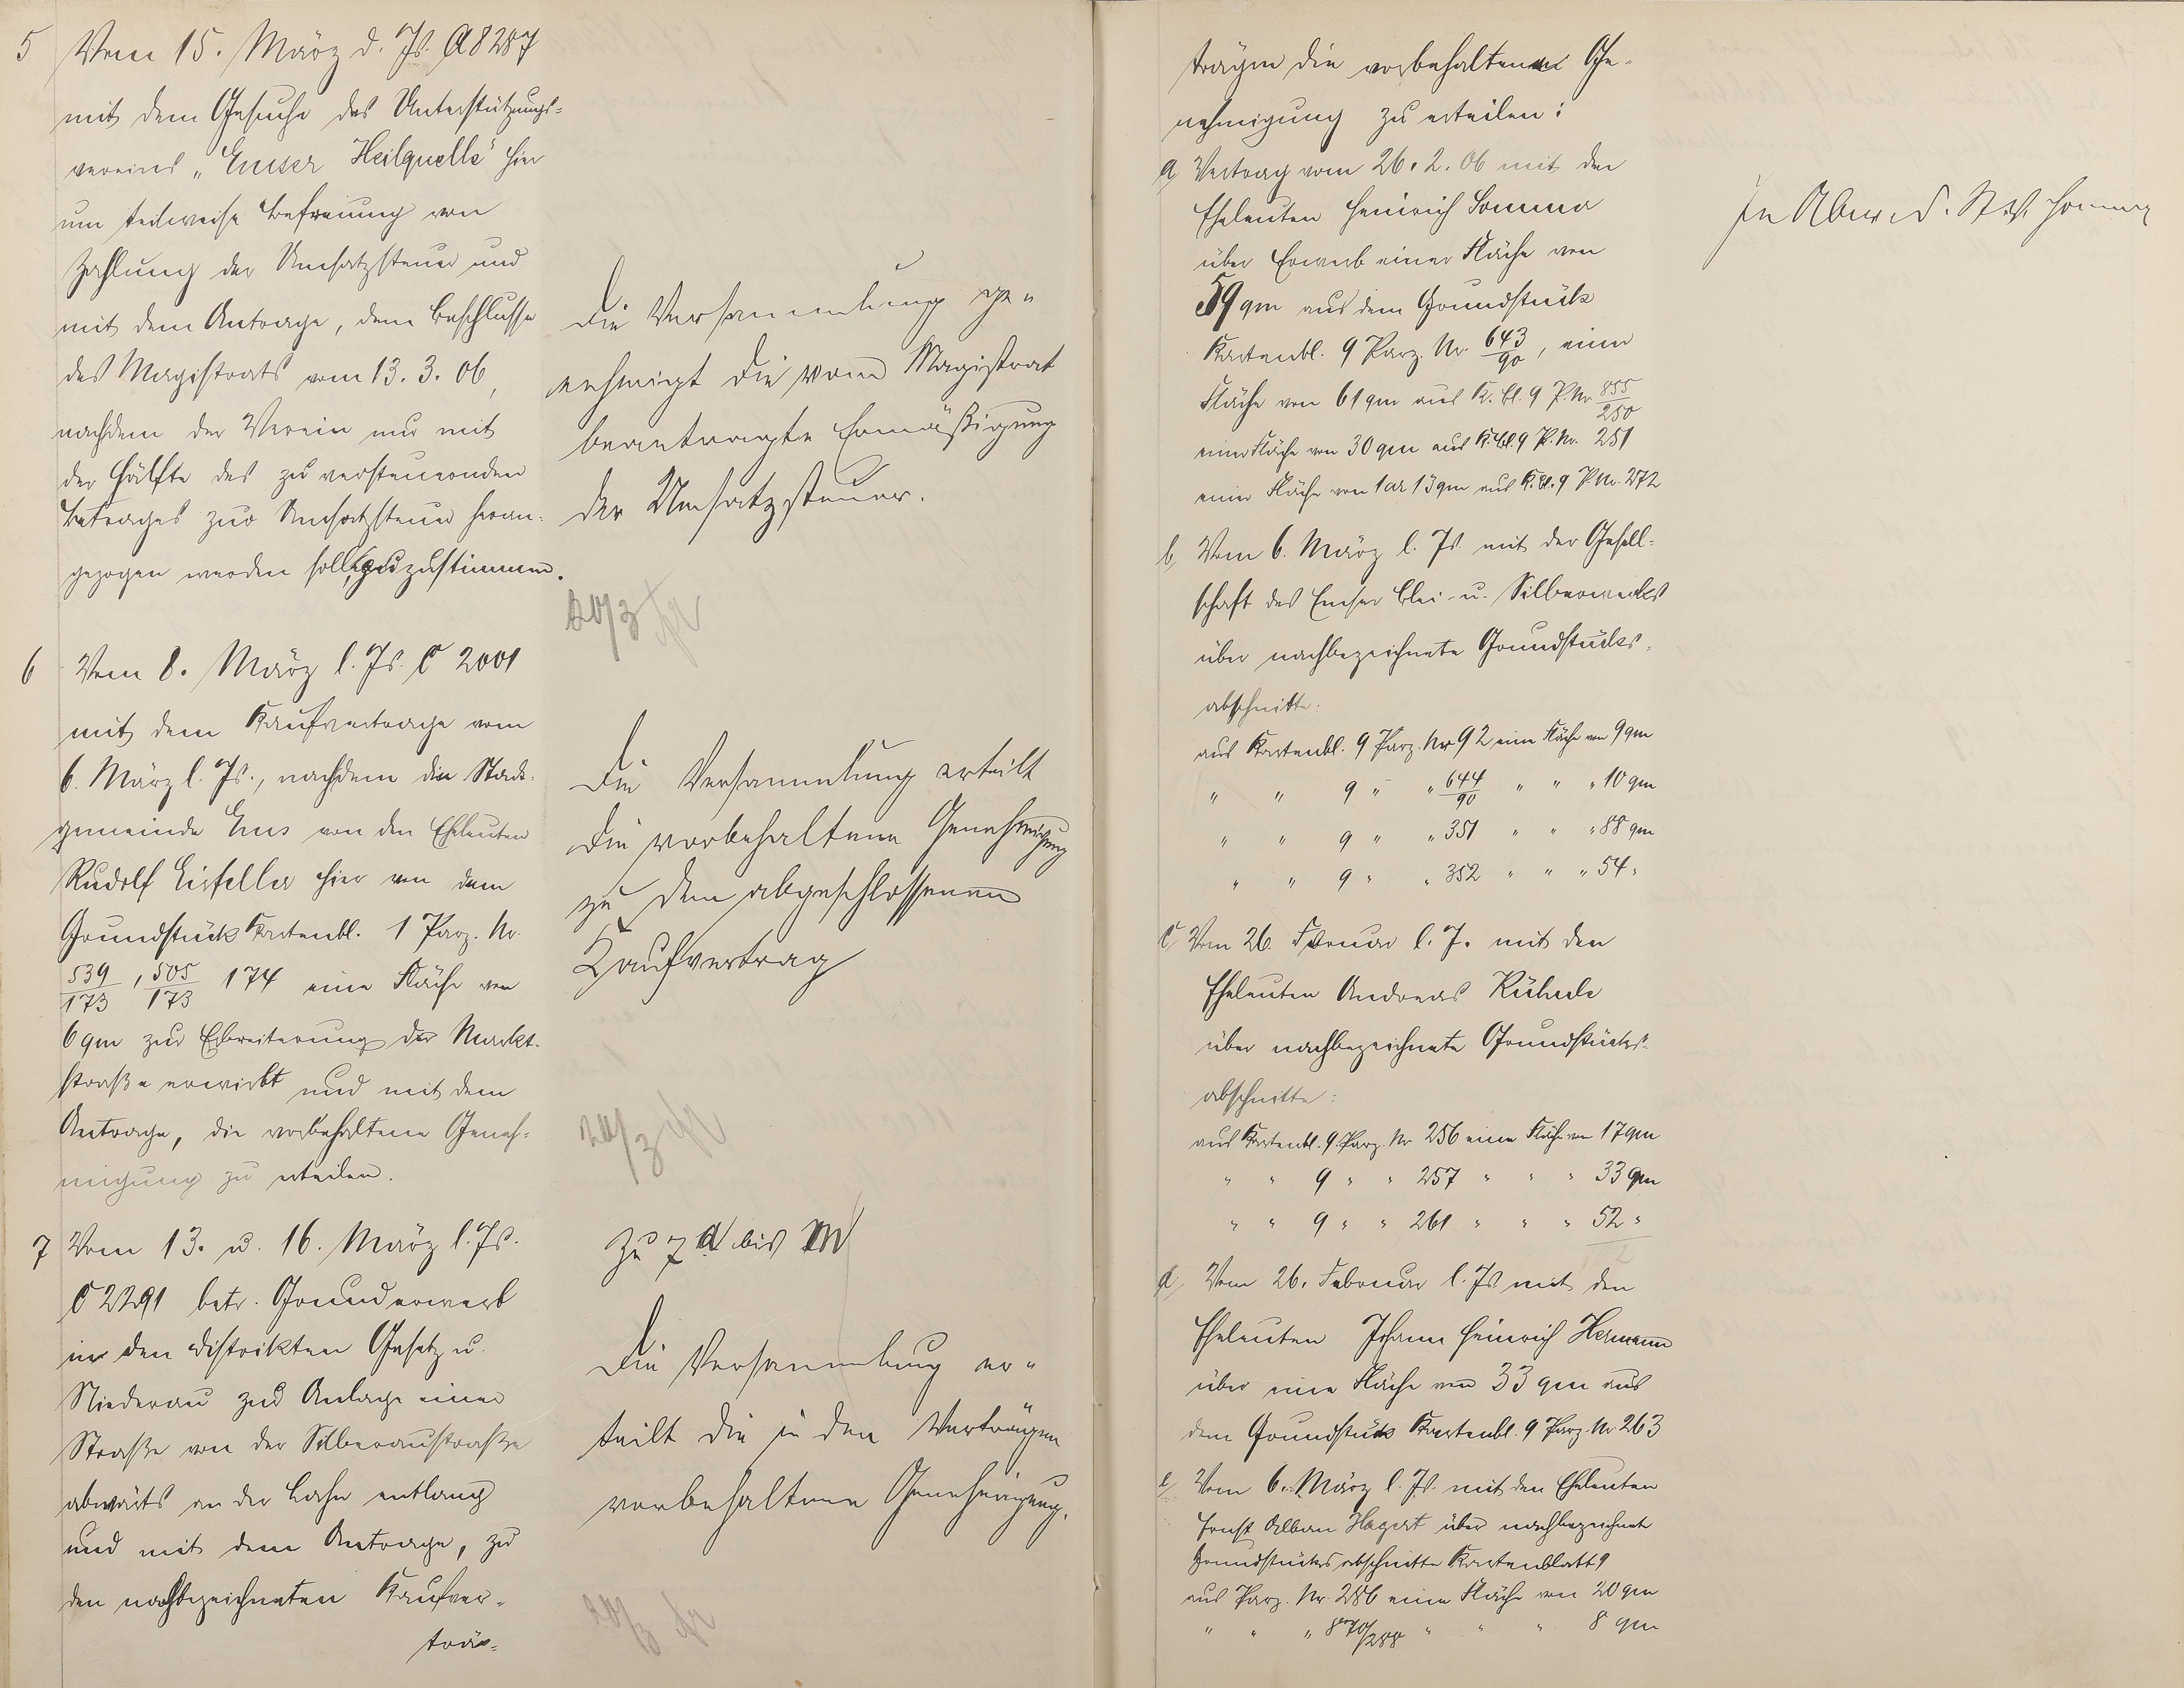 5 Vom 15. März d. Js. A 8287
mit dem Gesuche des Unterstützungs-
vereins „Emser Heilquelle" hier
um teilweise Befreiung von
Zahlung der Umsatzsteuer und
mit dem Antrage, dem Beschlusse
des Magistrats vom 13. 3. 06,
nachdem der Verein nur mit
der Hälfte des zu versteuernden
Betrages zur Umsatzsteuer heran-
gezogen werden soll, zuzustimmen.
Die Versammlung ge-
nehmigt die vom Magistrat
beantragte Ermäßigung
der Umsatzsteuer.
20/3
6 Vom 8. März l. Js. C 2001
mit dem Kaufvertrage vom
6. März l. Js., nachdem die Stadt-
gemeinde Ems von den Eheleuten
Rudolf Eisfeller hier von dem
Grundstück Kartenbl. 1 Parz. Nr.
539/173, 505/173 174 eine Fläche von
6 qm zur Erbreiterung der Markt-
straße erwirbt und mit dem
Antrage, die vorbehaltene Geneh-
migung zu erteilen.
Die Versammlung erteilt
die vorbehaltene Genehmigung
zu dem abgeschlossenen
Kaufvertrag
20/3
7 Vom 13. u. 16. März l. Js.
C 2291 betr. Grunderwerb
in den Distrikten Gesetz u.
Niederau zur Anlage einer
Straße von der Silberaustraße
abwärts an der Lahn entlang
und mit dem Antrage, zu
den nachbezeichneten Kaufver-
trä-
Zu 7 a bis m
Die Versammlung er-
teilt die in den Verträgen
vorbehaltene Genehmigung.
20/3
trägen die vorbehaltenen Ge-
nehmigung zu erteilen:
a, Vertrag vom 26. 2. 06 mit den
Eheleuten Heinrich Sommer
über Erwerb einer Fläche von
59 qm aus dem Grundstück
Kartenbl. 9 Parz. Nr. 643/90, einer
Fläche von 61 qm aus K. Bl. 9 P. Nr. 855/250
einer Fläche von 30 qm aus K. Bl. 9 P. Nr. 251
einer Fläche von 1 ar 13 qm aus K. Bl. 9 P. Nr. 272
b, Vom 6. März l. Js mit der Gesell-
schaft des Emser Blei- u. Silberwerks
über nachbezeichnete Grundstücks-
abschnitte:
aus Kartenbl. 9 Parz. Nr 92 eine Fläche von 9 qm
" " 9 " " 644/90 " " " 10 qm
" " 9 " " 351 " " " 88 qm
" " 9 " " 352 " " " 54 "
c Vom 26. Februar l. J. mit den
Eheleuten Andreas
über nachbezeichnete Grundstücks-
abschnitte:
aus Kartenbl. 9. Parz. Nr 256 eine Fläche von 17 qm
" " 9 " " 257 " " " 33 qm
" " 9 " " 261 " " " 52 "
d, Vom 26. Februar l. Js mit den
Eheleuten Johann Heinrich Hermann
über eine Fläche von 33 qm aus
dem Grundstück Kartenbl. 9 Parz. Nr 263
e, Vom 6. März l. Js. mit den Eheleuten
Ernst Alban Hagert über nachbezeichnete
Grundstücksabschnitte Kartenblatt 9
aus Parz. Nr. 286 eine Fläche von 20 qm
" " " 870/288 " " " 8 qm